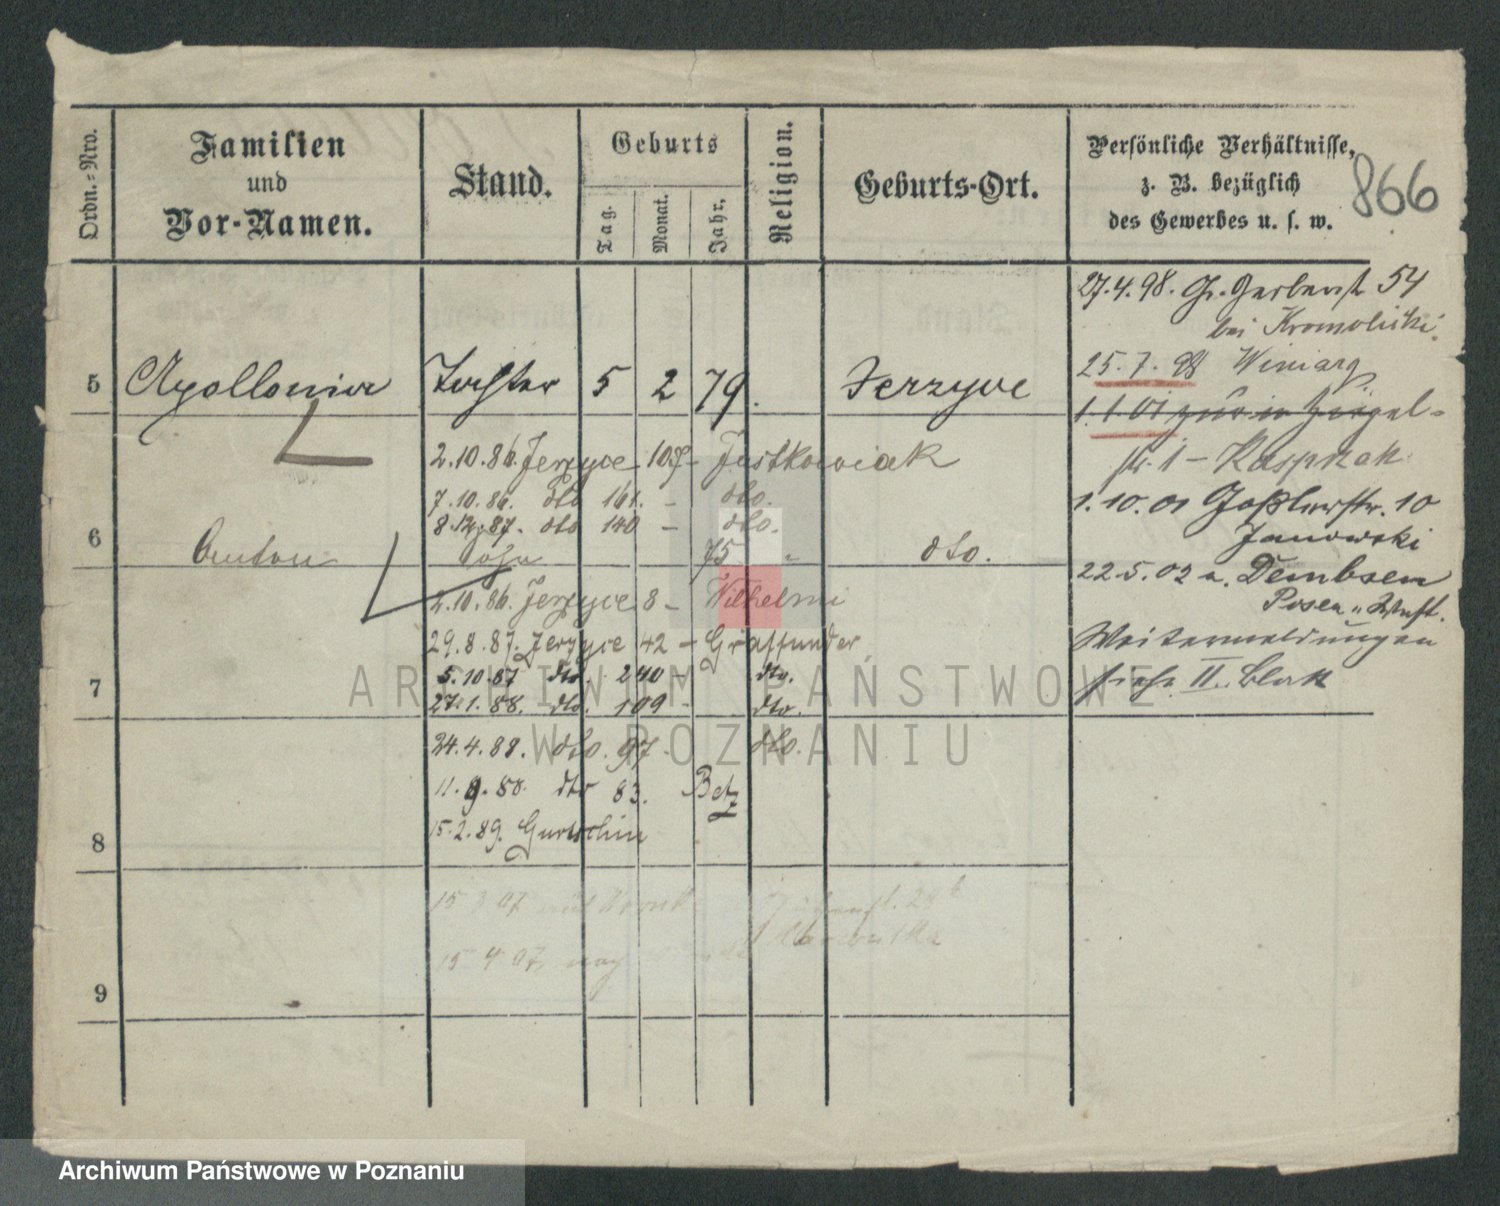 Ordn.=Nro.
Familien
und
Vor-Namen.
Stand.
Geburts
Tag.
Monat.
Jahr.
Religion.
Geburts-Ort.
Persönliche Verhältnisse,
z. B. bezüglich
des Gewerbes u. s. w.
866
27.4.98. Gr. Gerberst 54
bei Kromolicki.
5 Apollonia Tochter 5 2 79. Jerzyce
25.7.98 Winiary
1.1.01
2.10.86. Jerzyce 109 - Justkowiak
str. 1 - Kasprzak
7.10.86. dto 161. - dto.
1.10.01 Goßlerstr. 10
8.12.87. dto 140 - dto.
Janowski
6 Anton Sohn 75 " dto.
22.5.02 n. Dembsen
2.10.86. Jerzyce 8 - Wilhelmi
Posen
29.8.87. Jerzyce 42 - Graffunder
Weitermeldungen
5.10.87 dto. 240 - dto.
siehe II. Blatt
7
27.1.88. dto. 109 - dto.
24.4.88. dto. 97 - dto.
11.9.88. dto 83. Betz
15.2.89. Gurtschin
8
15 3 07
15 4 07
9
ARCHIWUM PAŃSTWOWE
W POZNANIU
Archiwum Państwowe w Poznaniu